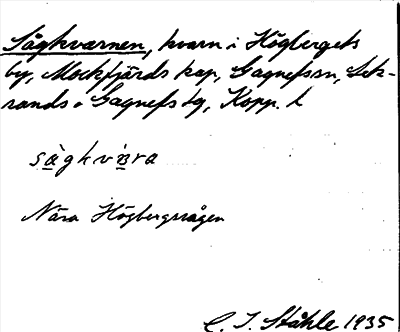 Sågkvarnen, kvarn i Högbergets
by, Mockfjärds kap, Gagnefs sn, Lek-
rands o Gagnefs tg, Kopp. l
Nära Högbergssågen
C. I. Ståhle 1935